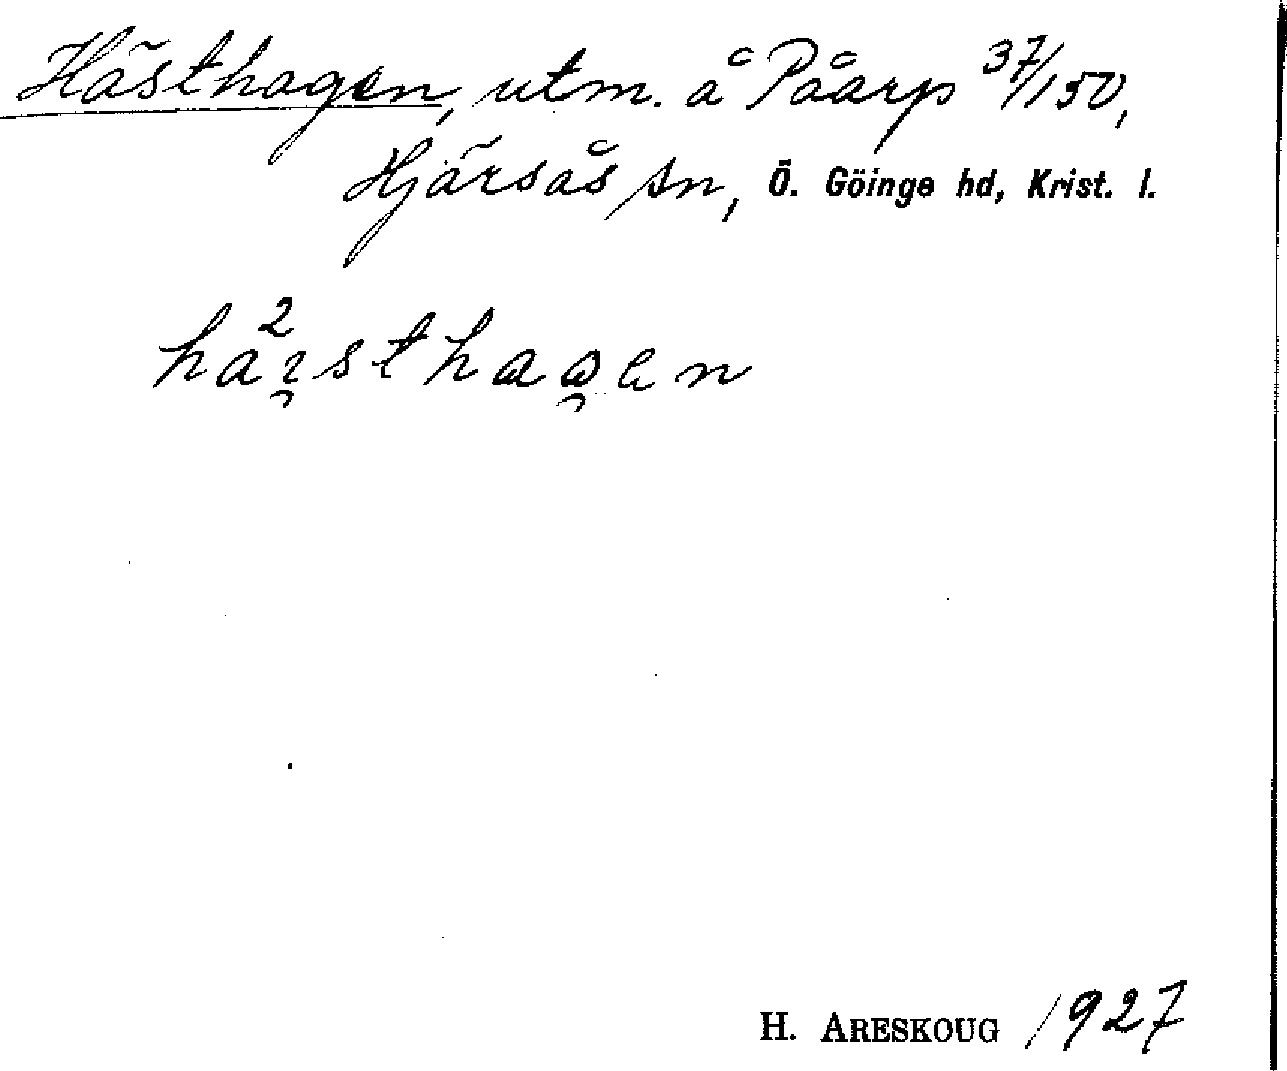 Hästhagen, utm. å Påarp 37/150,
Hjärsås sn, Ö. Göinge hd, Krist. l.
H. ARESKOUG 1927